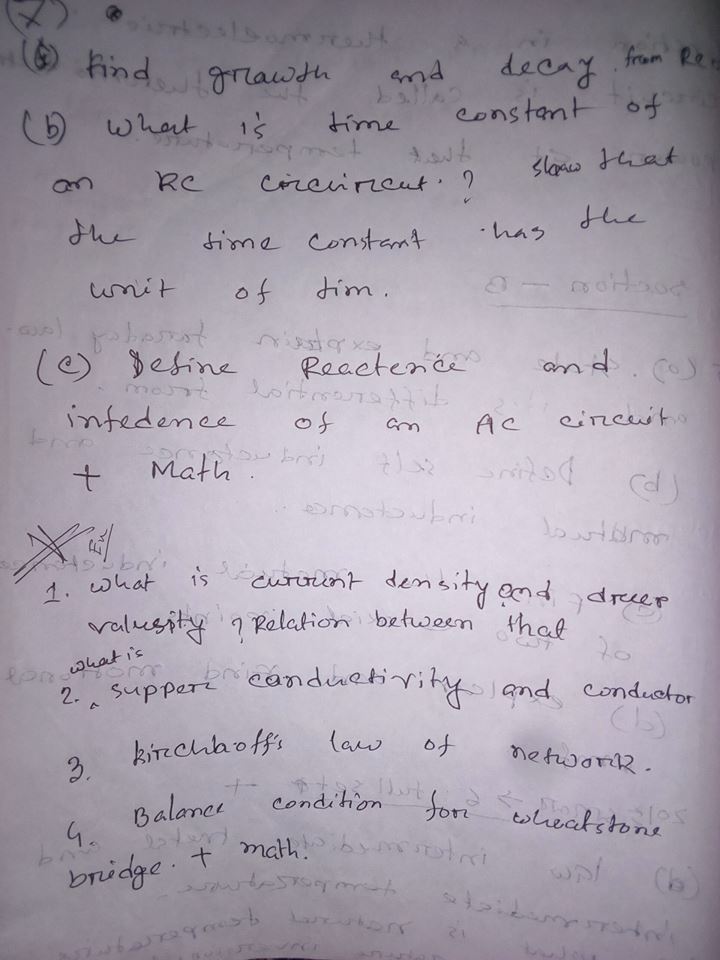 (7)
(a) Find growth and decay from Re
(b) what is time constant of
an RC circuircut. ? show that
the time constant has the
unit of tim.
(c) Define Reactence and
infedence of an AC circuit
+ Math.
Ex/
1. what is current density and
valusity ? Relation between that
what is
2. supper conductivity and conductor
3. kirchhoff's law of network.
4. Balance condition for wheatstone
bridge. + math.